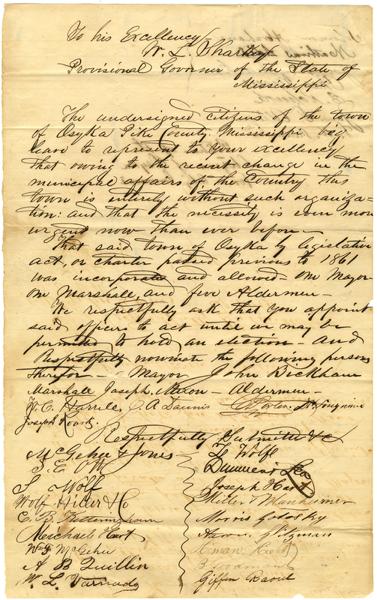 To his Excellency
W. L. Sharkey
Provisional Governor of the State of
Mississippi
The undersigned citizens of the town
of Osyka Pike County Mississippi beg
leave to represent to your excellency
that owing to the recent change in the
municipal affairs of the Country this
town is entirely without such organiza-
tion: and that the necessity is even more
urgent now than ever before—
That said town of Osyka by legislative
act, or charter passed previous to 1861
was incorporated and allowed one Mayor
one Marshall, and five Aldermen—
We respectfully ask that you appoint
said officers to act until we may be
permitted to hold an election— and
Respectfully nominate the following persons
therefor— Mayor John Bickham
Marshall Joseph Aldermen—
W. C. Harrell
Joseph
Respectfully Submitted &c
McGehee & Jones
S. E. Ott
S Wolf
Wolf Hiller & Co
E. B.
W. McGehee
A B Quillin
W. L. Varnado
L Wolfe
Joseph Hart
Hiller & Manheimer
Morris